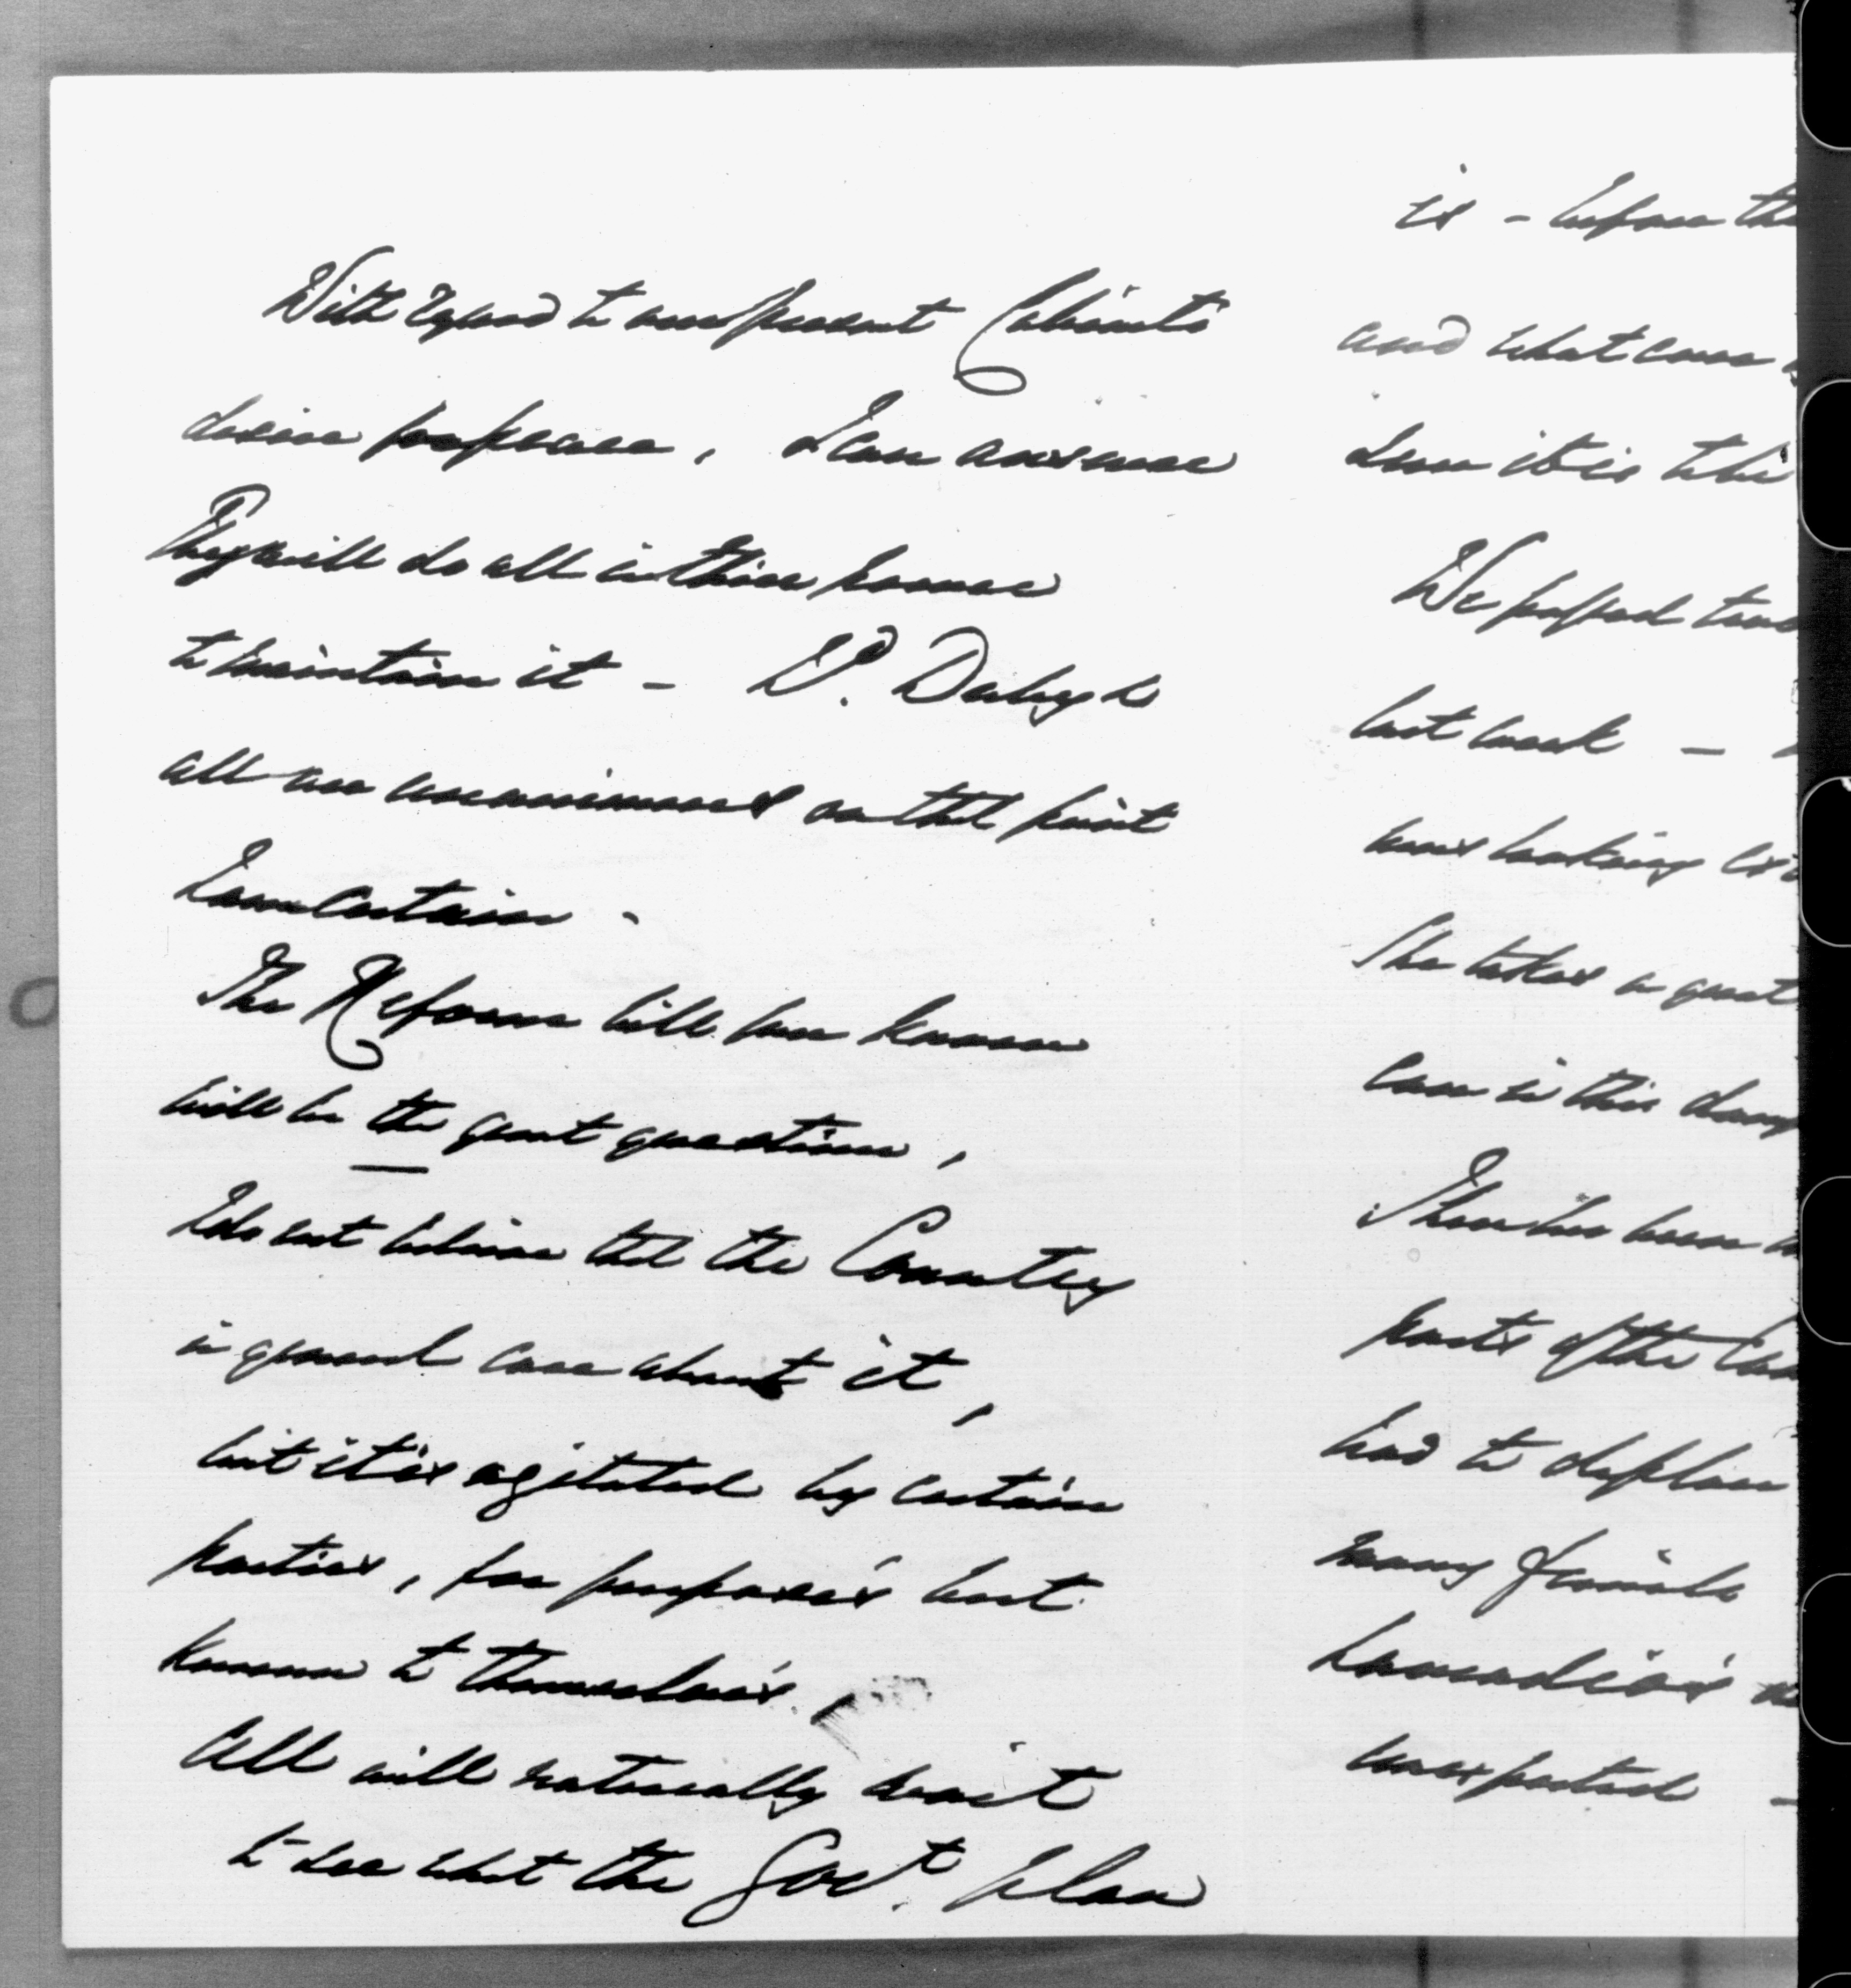 With regard to our present Cabinets
desire for peace, I can answer
They will do all in their power
to maintain it - Ld. Derby &
all are unanimous on that point
I am certain -
The Reform bill her known
will be the great question,
I do not believe that the Country
in general care about it,
but it is agitated by certain
parties, for purposes best
known to themselves,
All will naturally wait
to see what the Govt. plan
is - before the
and what can
see it is
We
last week -
was looking
She takes a great
care in this
There has been
parts of the
had to deplore
many friends
unexpected -